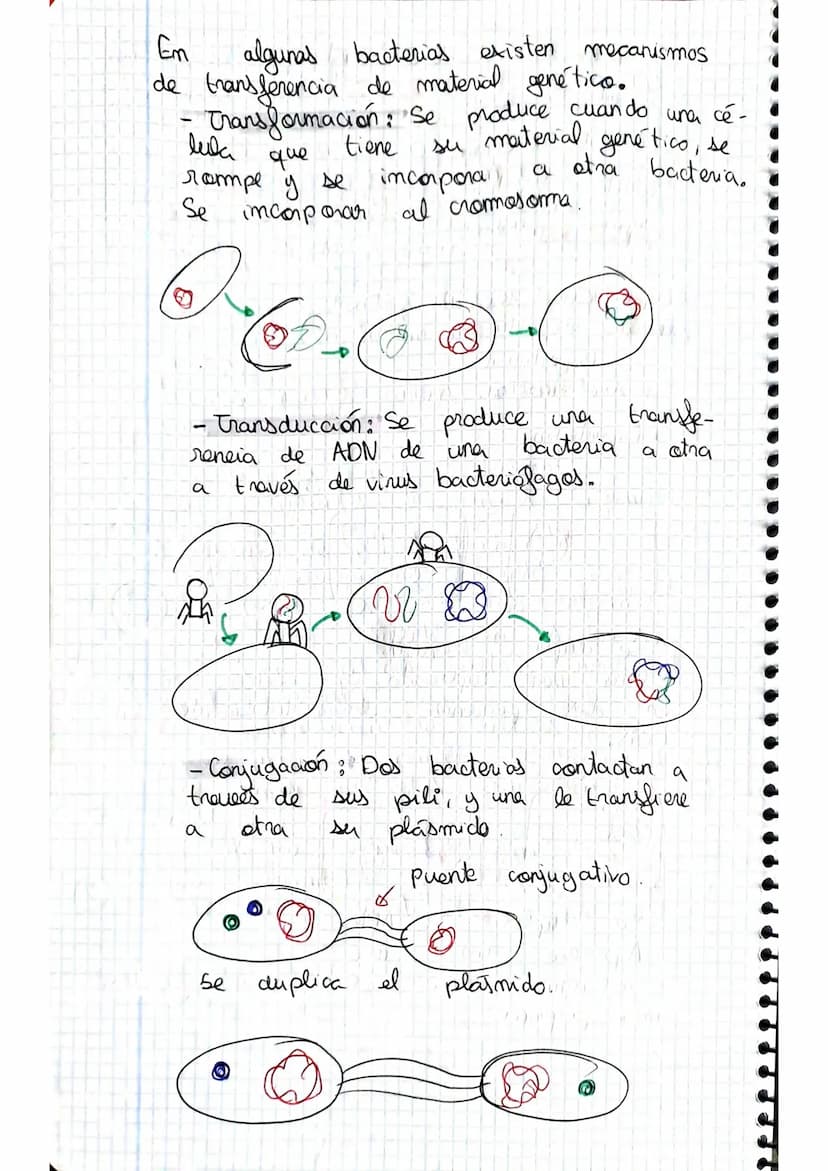 En algunas bacterias existen mecanismos
de transferencia de material genético.
- Transformación: Se produce cuando una cé-
lula que tiene su material genético, se
rompe y se incorpora a otra bacteria.
Se incorporar al cromosoma.
- Transducción: Se produce una transfe-
rencia de ADN de una bacteria a otra
a través de virus bacteriófagos.
- Conjugación: Dos bacterias contactan a
través de sus pili, y una le transfiere
a otra su plásmido.
puente conjugativo.
Se duplica el plásmido.